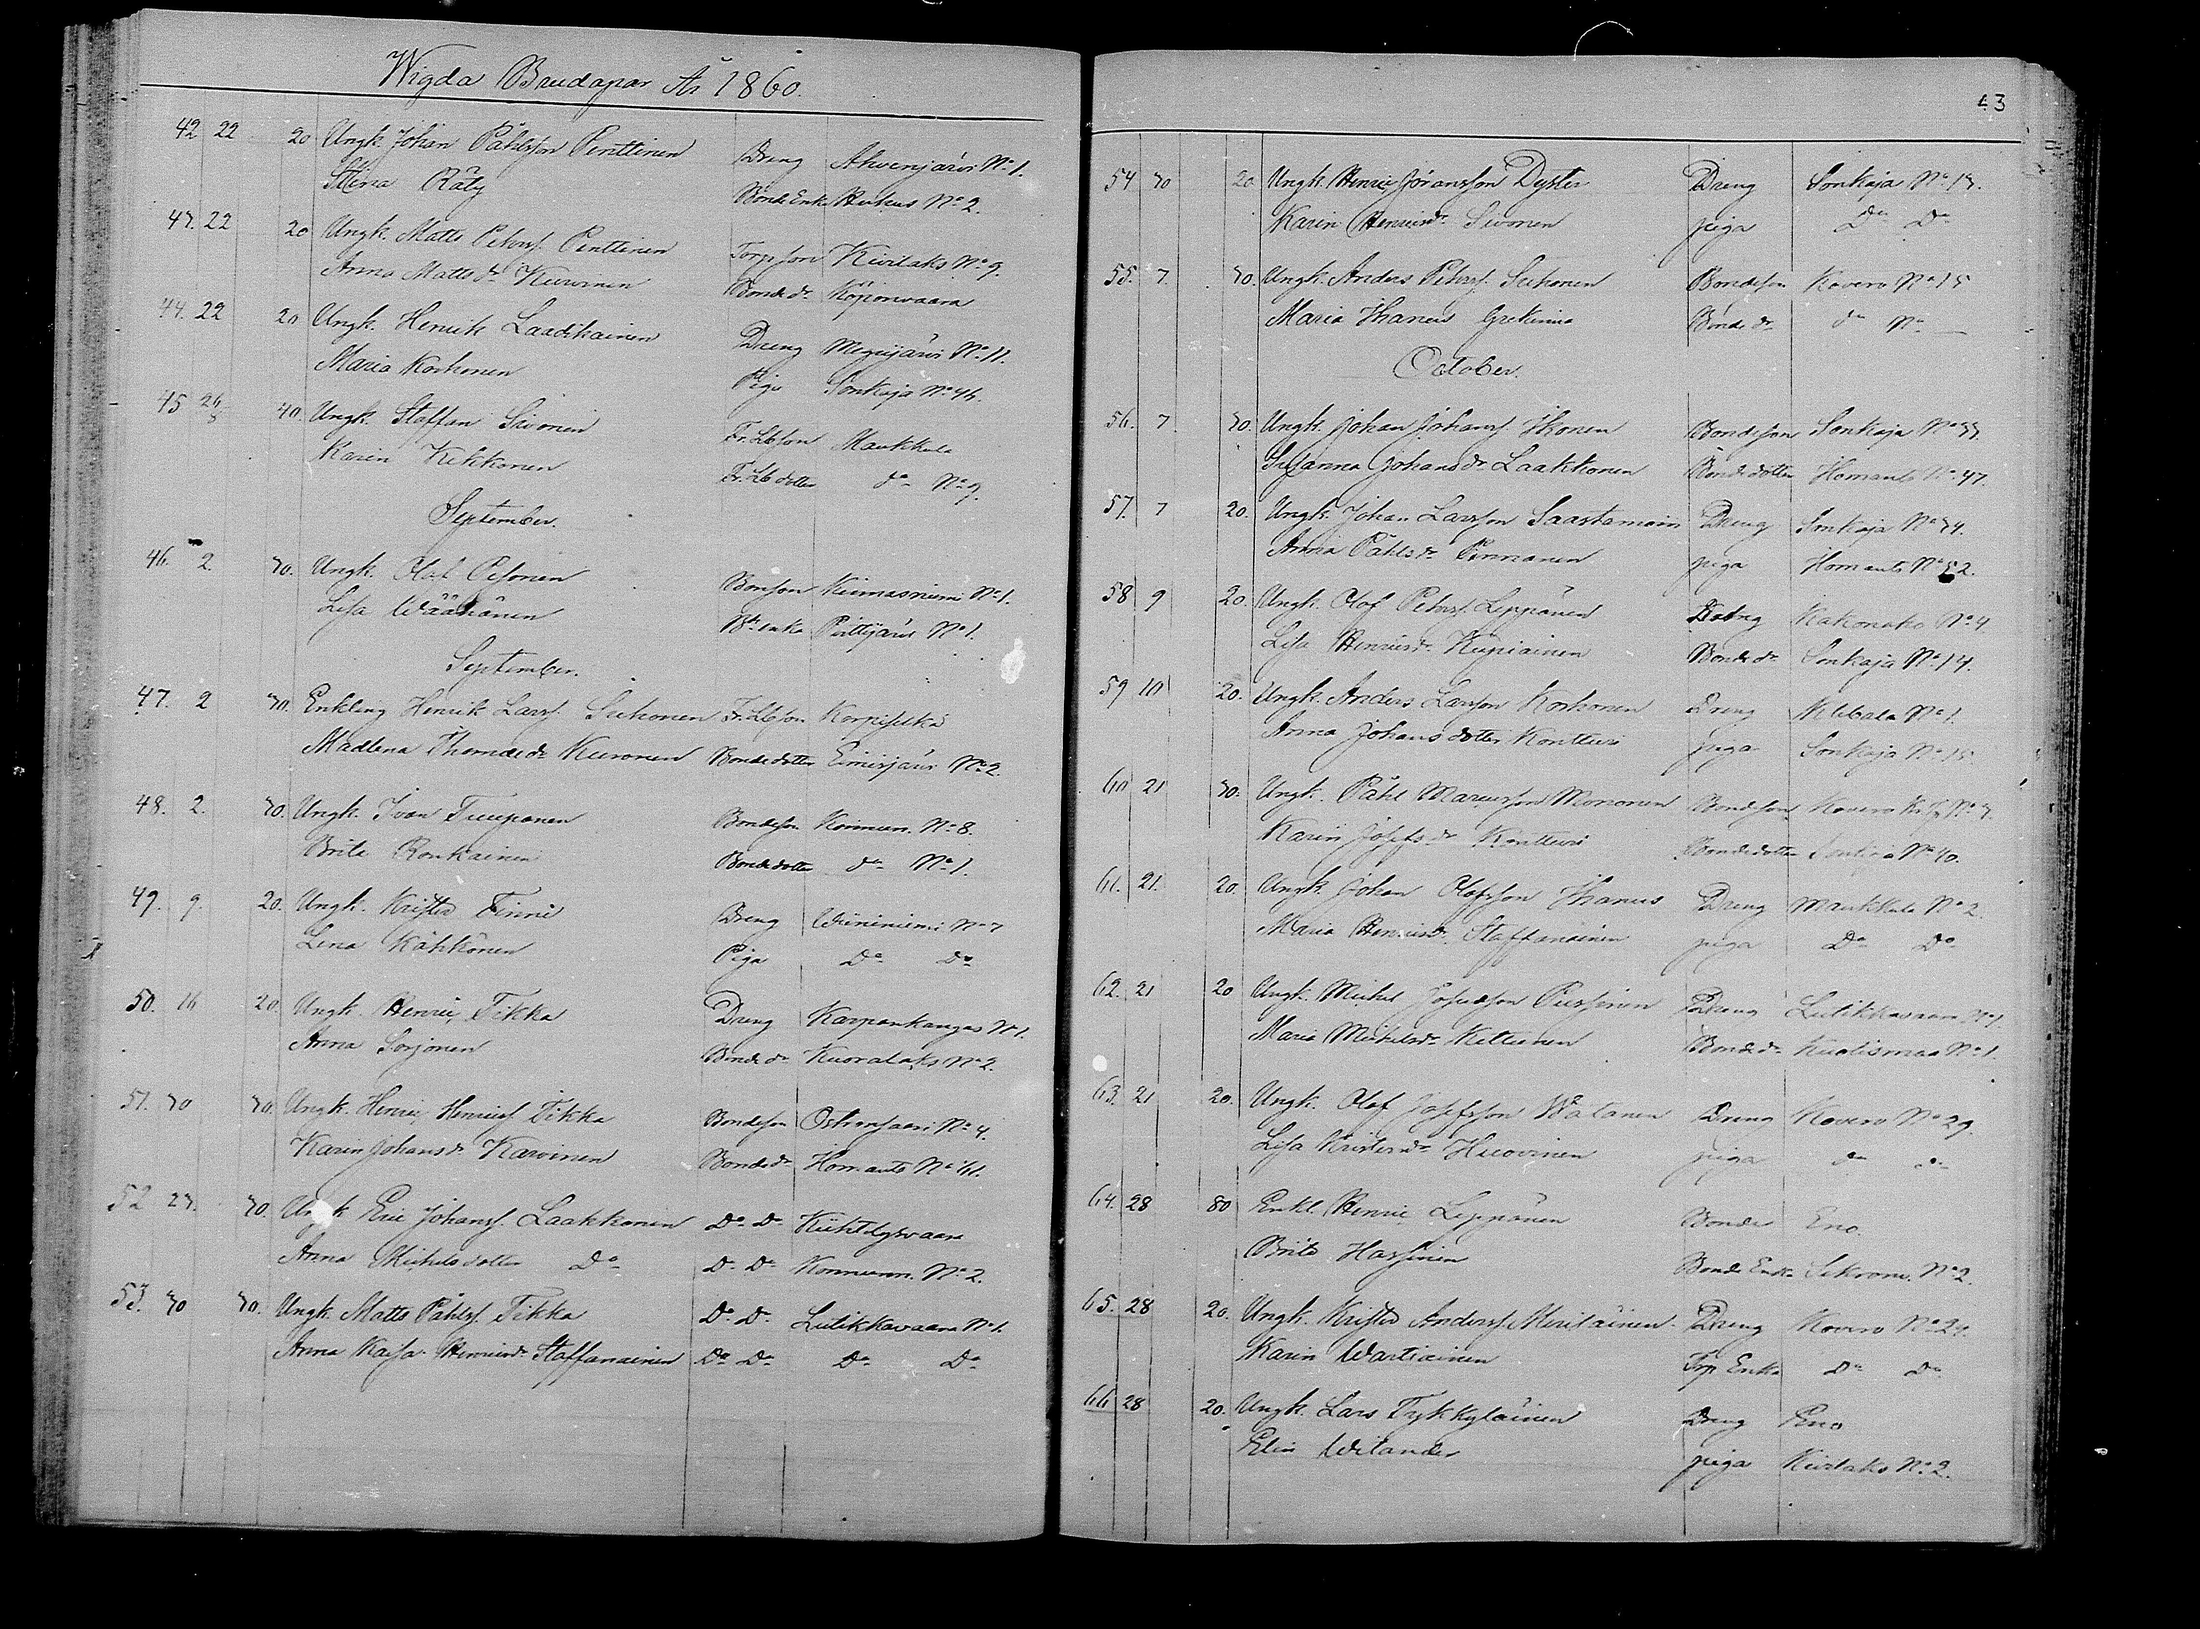 Wigda Brudapar År 1860.
42. 22 20 Ungk. Johan Påhlsson Penttinen Dreng Ahvenjärvi No 1.
Stina Räty Bonde Enk. Huhus No 2.
43. 22 20 Ungk. Matts Petersf. Penttinen Torpson Kivilaks No 9.
Anna Matts dr Kurvinen Bonde dr Köpönvaara
44. 22 20 Ungk. Henrik Laadikainen Dreng Megrijärvi No 11.
Maria Korhonen Piga Sonkaja No 46.
45 26/8 40. Ungk. Staffan Sivonen Maukkula
Karin Kekkonen do No 9.
September.
46. 2. 30. Ungk. Olof Pesonen Bonson No 1.
Lisa Wäänänen Bd enka No 1.
September.
47. 2 30. Enkling Henrik Larsf. Suhonen Korpiselkä
Madlena Thomæ dr Kuronen Bondedotter No 2.
48. 2. 30. Ungk. Ivan Turpanen Bondeson No 8.
Brita Ronkainen Bondedotter do No 1.
49. 9. 20. Ungk. Krister Finni Dreng No 7
Lena Kähkönen Piga Do Do
50. 16 20 Ungk. Henric Tikka Dreng Karpankangas No 1.
Anna Sorjonen Bonde dr Kuoralaks No 2.
51. 30 30. Ungk. Henric Henricsf. Tikka Bondeson No 4.
Karin Johans dr Karvinen Bonde dr Ilomants
52 23. 30. Ungk. Eric Johansf. Laakkonen Do Do
Anna Michelsdotter Do Do Do No 2.
53. 30 30. Ungk. Matts Påhlsf. Tikka Do Do Lutikkavaara No 1.
Anna Kajsa Henrics dr Staffanainen Do Do Do Do
43
54 30 20 Ungk. Henric Göransson Dyster Dreng Sonkaja No 13.
Karin Henrics dr Sivonen piga Do Do
55. 7. 30. Ungk. Anders Petersf. Suhonen Bondeson Kovero No 15
Maria Ihanus Bonde dr do No
October.
56. 7 30. Ungk. Johan Johansf. Ikonen Bondeson Sonkaja No 33.
Susanna Johans dr Laakkonen Bondedotter Ilomants No 47.
57. 7 20. Ungk. Johan Larsson Saastamoin Dreng Sonkaja No 34.
Anna Påhls dr Pennanen piga Ilomants
58 9 20. Ungk. Olof Petersf. Leppänen Dreng Kakonaho No 4.
Lisa Henrics dr Kupiainen Bonde dr Sonkaja No 14.
59 10 20. Ungk. Anders Larsson Korhonen Dreng No 1.
Anna Johansdotter Kontturi piga Sonkaja No 15
60 21 30. Ungk. Påhl Marcusson Mononen Bondeson Kovero
Karin Josefs dr Kontturi Bondedotter No 40.
61. 21. 20. Ungk. Johan Olofsson Ihanus Dreng Maukkula No 2.
Maria Henrics dr Staffanainen piga Do Do
62. 21 20 Ungk. Michel Josefsson Pussinen Dreng Lutikkavaara No 1.
Maria Michels dr Kettunen Bonde dr Kuolismaa No 1.
63. 21 20. Ungk. Olof Josefsson Watanen Dreng Kovero No 29.
Lisa Kristers dr Huovinen piga do do
64. 28 80 Enkl. Henric Leppänen Bonde Eno.
Brita Hassinen Bonde Enka No 2.
65. 28 20. Ungk. Krister Andersf. Meriläinen Dreng Kovero
Karin Wartiainen Torp Enka Do Do
66 28 20. Ungk. Lars Tykkyläinen Dreng Eno
Elin Wilander piga Kivilaks No 2.